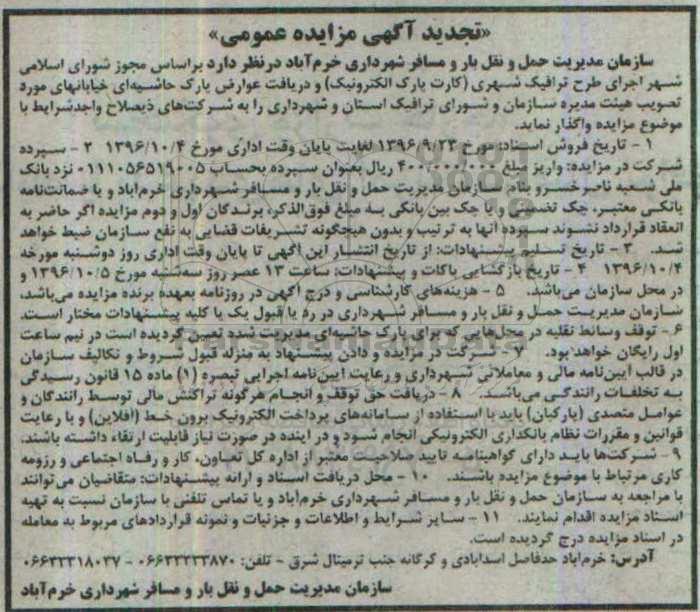 «تجدید آگهی مزایده عمومی»
سازمان مدیریت حمل و نقل بار و مسافر شهرداری خرم‌آباد در نظر دارد براساس مجوز شورای اسلامی
شهر اجرای طرح ترافیک شهری (کارت پارک الکترونیک) و دریافت عوارض پارک حاشیه‌ای خیابانهای مورد
تصویب هیئت مدیره سازمان و شورای ترافیک استان و شهرداری را به شرکت‌های ذیصلاح واجدشرایط با
موضوع مزایده واگذار نماید.
۱ - تاریخ فروش اسناد: مورخ ۱۳۹۶/۹/۲۳ لغایت پایان وقت اداری مورخ ۱۳۹۶/۱۰/۴ ۲ - سپرده
شرکت در مزایده: واریز مبلغ ۴۰۰/۰۰۰/۰۰۰ ریال بعنوان سپرده بحساب ۰۱۱۱۰۵۶۵۱۹۰۰۵ نزد بانک
ملی شعبه ناصر خسرو بنام سازمان مدیریت حمل و نقل بار و مسافر شهرداری خرم‌آباد و یا ضمانت‌نامه
بانکی معتبر، چک تضمینی و یا چک بین بانکی به مبلغ فوق‌الذکر، برندگان اول و دوم مزایده اگر حاضر به
انعقاد قرارداد نشوند سپرده آنها به ترتیب و بدون هیچگونه تشریفات قضایی به نفع سازمان ضبط خواهد
شد. ۳ - تاریخ تسلیم پیشنهادات: از تاریخ انتشار این آگهی تا پایان وقت اداری روز دوشنبه مورخه
۱۳۹۶/۱۰/۴ ۴ - تاریخ بازگشایی پاکات و پیشنهادات: ساعت ۱۳ عصر روز سه‌شنبه مورخ ۱۳۹۶/۱۰/۵ و
در محل سازمان می‌باشد. ۵ - هزینه‌های کارشناسی و درج آگهی در روزنامه بعهده برنده مزایده می‌باشد،
سازمان مدیریت حمل و نقل بار و مسافر شهرداری در رد یا قبول یک یا کلیه پیشنهادات مختار است.
۶ - توقف وسائط نقلیه در محل‌هایی که برای پارک حاشیه‌ای مدیریت شده تعیین گردیده است در نیم ساعت
اول رایگان خواهد بود. ۷ - شرکت در مزایده و دادن پیشنهاد به منزله قبول شروط و تکالیف سازمان
در قالب آیین‌نامه مالی و معاملاتی شهرداری و رعایت آیین‌نامه اجرایی تبصره (۱) ماده ۱۵ قانون رسیدگی
به تخلفات رانندگی می‌باشد. ۸ - دریافت حق توقف و انجام هرگونه تراکنش مالی توسط رانندگان و
عوامل متصدی (پارکبان) باید با استفاده از سامانه‌های پرداخت الکترونیک برون خط (آفلاین) و با رعایت
قوانین و مقررات نظام بانکداری الکترونیکی انجام شود و در آینده در صورت نیاز قابلیت ارتقاء داشته باشند.
۹ - شرکت‌ها باید دارای گواهینامه تایید صلاحیت معتبر از اداره کل تعاون، کار و رفاه اجتماعی و رزومه
کاری مرتباط با موضوع مزایده باشند. ۱۰ - محل دریافت اسناد و ارائه پیشنهادات: متقاضیان می‌توانند
با مراجعه به سازمان حمل و نقل بار و مسافر شهرداری خرم‌آباد و یا تماس تلفنی با سازمان نسبت به تهیه
اسناد مزایده اقدام نمایند. ۱۱ - سایر شرایط و اطلاعات و جزئیات و نمونه قراردادهای مربوط به معامله
در اسناد مزایده درج گردیده است.
آدرس: خرم‌آباد حدفاصل اسدآبادی و کرگانه جنب ترمینال شرق - تلفن: ۰۶۶۳۳۲۳۳۸۷۰ - ۰۶۶۳۳۳۱۸۰۳۷
سازمان مدیریت حمل و نقل بار و مسافر شهرداری خرم‌آباد